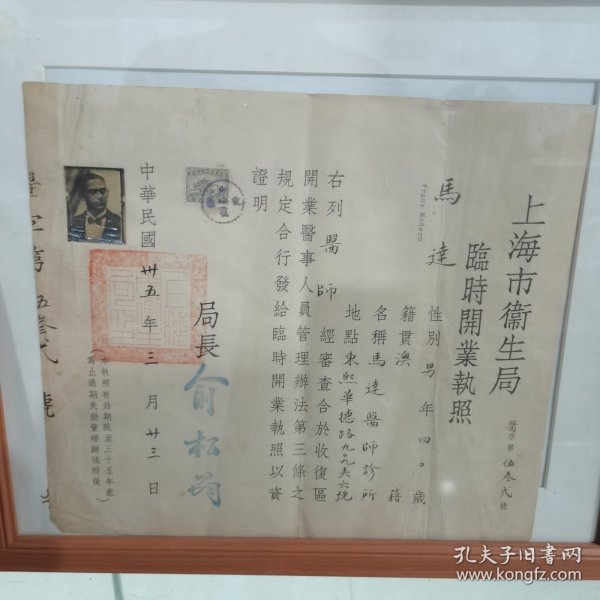 上海市衞生局
臨時開業執照
醫字第伍叁弍號
馬達
性別男年四〇歲
籍貫澳籍
名稱馬達醫師診所
地點東熙華德路
右列醫師經審查合於收復區
開業醫事人員管理辦法第三條之
規定合行發給臨時開業執照以資
證明
局長俞松筠
中華民國卅五年三月廿三日
本執照有効期限至三十五年底
為止過期失効管理辦法附後
孔夫子旧书网
www.kongfz.com